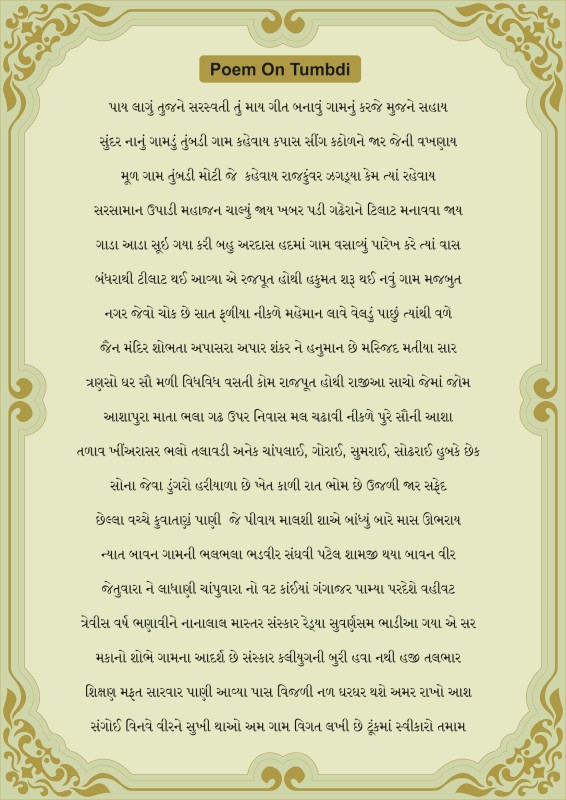 Poem On Tumbdi
પાય લાગું તુજને સરસ્વતી તું માય ગીત બનાવું ગામનું કરજે મુજને સહાય
સુંદર નાનું ગામડું તુંબડી ગામ કહેવાય કપાસ સીંગ કઠોળને જાર જેની વખણાય
મૂળ ગામ તુંબડી મોટી જે કહેવાય રાજકુંવર ઝગડ્યા કેમ ત્યાં રહેવાય
સરસામાન ઉપાડી મહાજન ચાલ્યું જાય ખબર પડી ગઢેરાને ટિલાટ મનાવવા જાય
ગાડા આડા સૂઇ ગયા કરી બહુ અરદાસ હદમાં ગામ વસાવ્યું પારેખ કરે ત્યાં વાસ
બંધરાથી ટીલાટ થઈ આવ્યા એ રજપૂત હોથી હકુમત શરૂ થઈ નવું ગામ મજબુત
નગર જેવો ચોક છે સાત ફળીયા નીકળે મહેમાન લાવે વેલડું પાછું ત્યાંથી વળે
જૈન મંદિર શોભતા અપાસરા અપાર શંકર ને હનુમાન છે મસ્જિદ મતીયા સાર
ત્રણસો ઘર સૌ મળી વિધવિધ વસતી કોમ રાજપૂત હોથી રાજીઆ સાચો જેમાં જોમ
આશાપુરા માતા ભલા ગઢ ઉપર નિવાસ મલ ચઢાવી નીકળે પુરે સૌની આશા
તળાવ ખીંઅરાસર ભલો તલાવડી અનેક ચાંપલાઈ, ગોરાઈ, સુમરાઈ, સોઢરાઈ હુબકે છેક
સોના જેવા ડુંગરો હરીયાળા છે ખેત કાળી રાત ભોમ છે ઉજળી જાર સફેદ
છેલ્લા વચ્ચે કુવાતણું પાણી જે પીવાય માલશી શાએ બાંધ્યું બારે માસ ઊભરાય
ન્યાત બાવન ગામની ભલભલા ભડવીર સંઘવી પટેલ શામજી થયા બાવન વીર
જેતુવારા ને લાધાણી ચાંપુવારા નો વટ કાંઈયાં ગંગાજર પામ્યા પરદેશે વહીવટ
ત્રેવીસ વર્ષ ભણાવીને નાનાલાલ માસ્તર સંસ્કાર રેડ્યા સુવર્ણસમ ભાડીઆ ગયા એ સર
મકાનો શોભે ગામના આદર્શ છે સંસ્કાર કલીયુગની બુરી હવા નથી હજી તલભાર
શિક્ષણ મફત સારવાર પાણી આવ્યા પાસ વિજળી નળ ઘરઘર થશે અમર રાખો આશ
સંગોઈ વિનવે વીરને સુખી થાઓ અમ ગામ વિગત લખી છે ટૂંકમાં સ્વીકારો તમામ